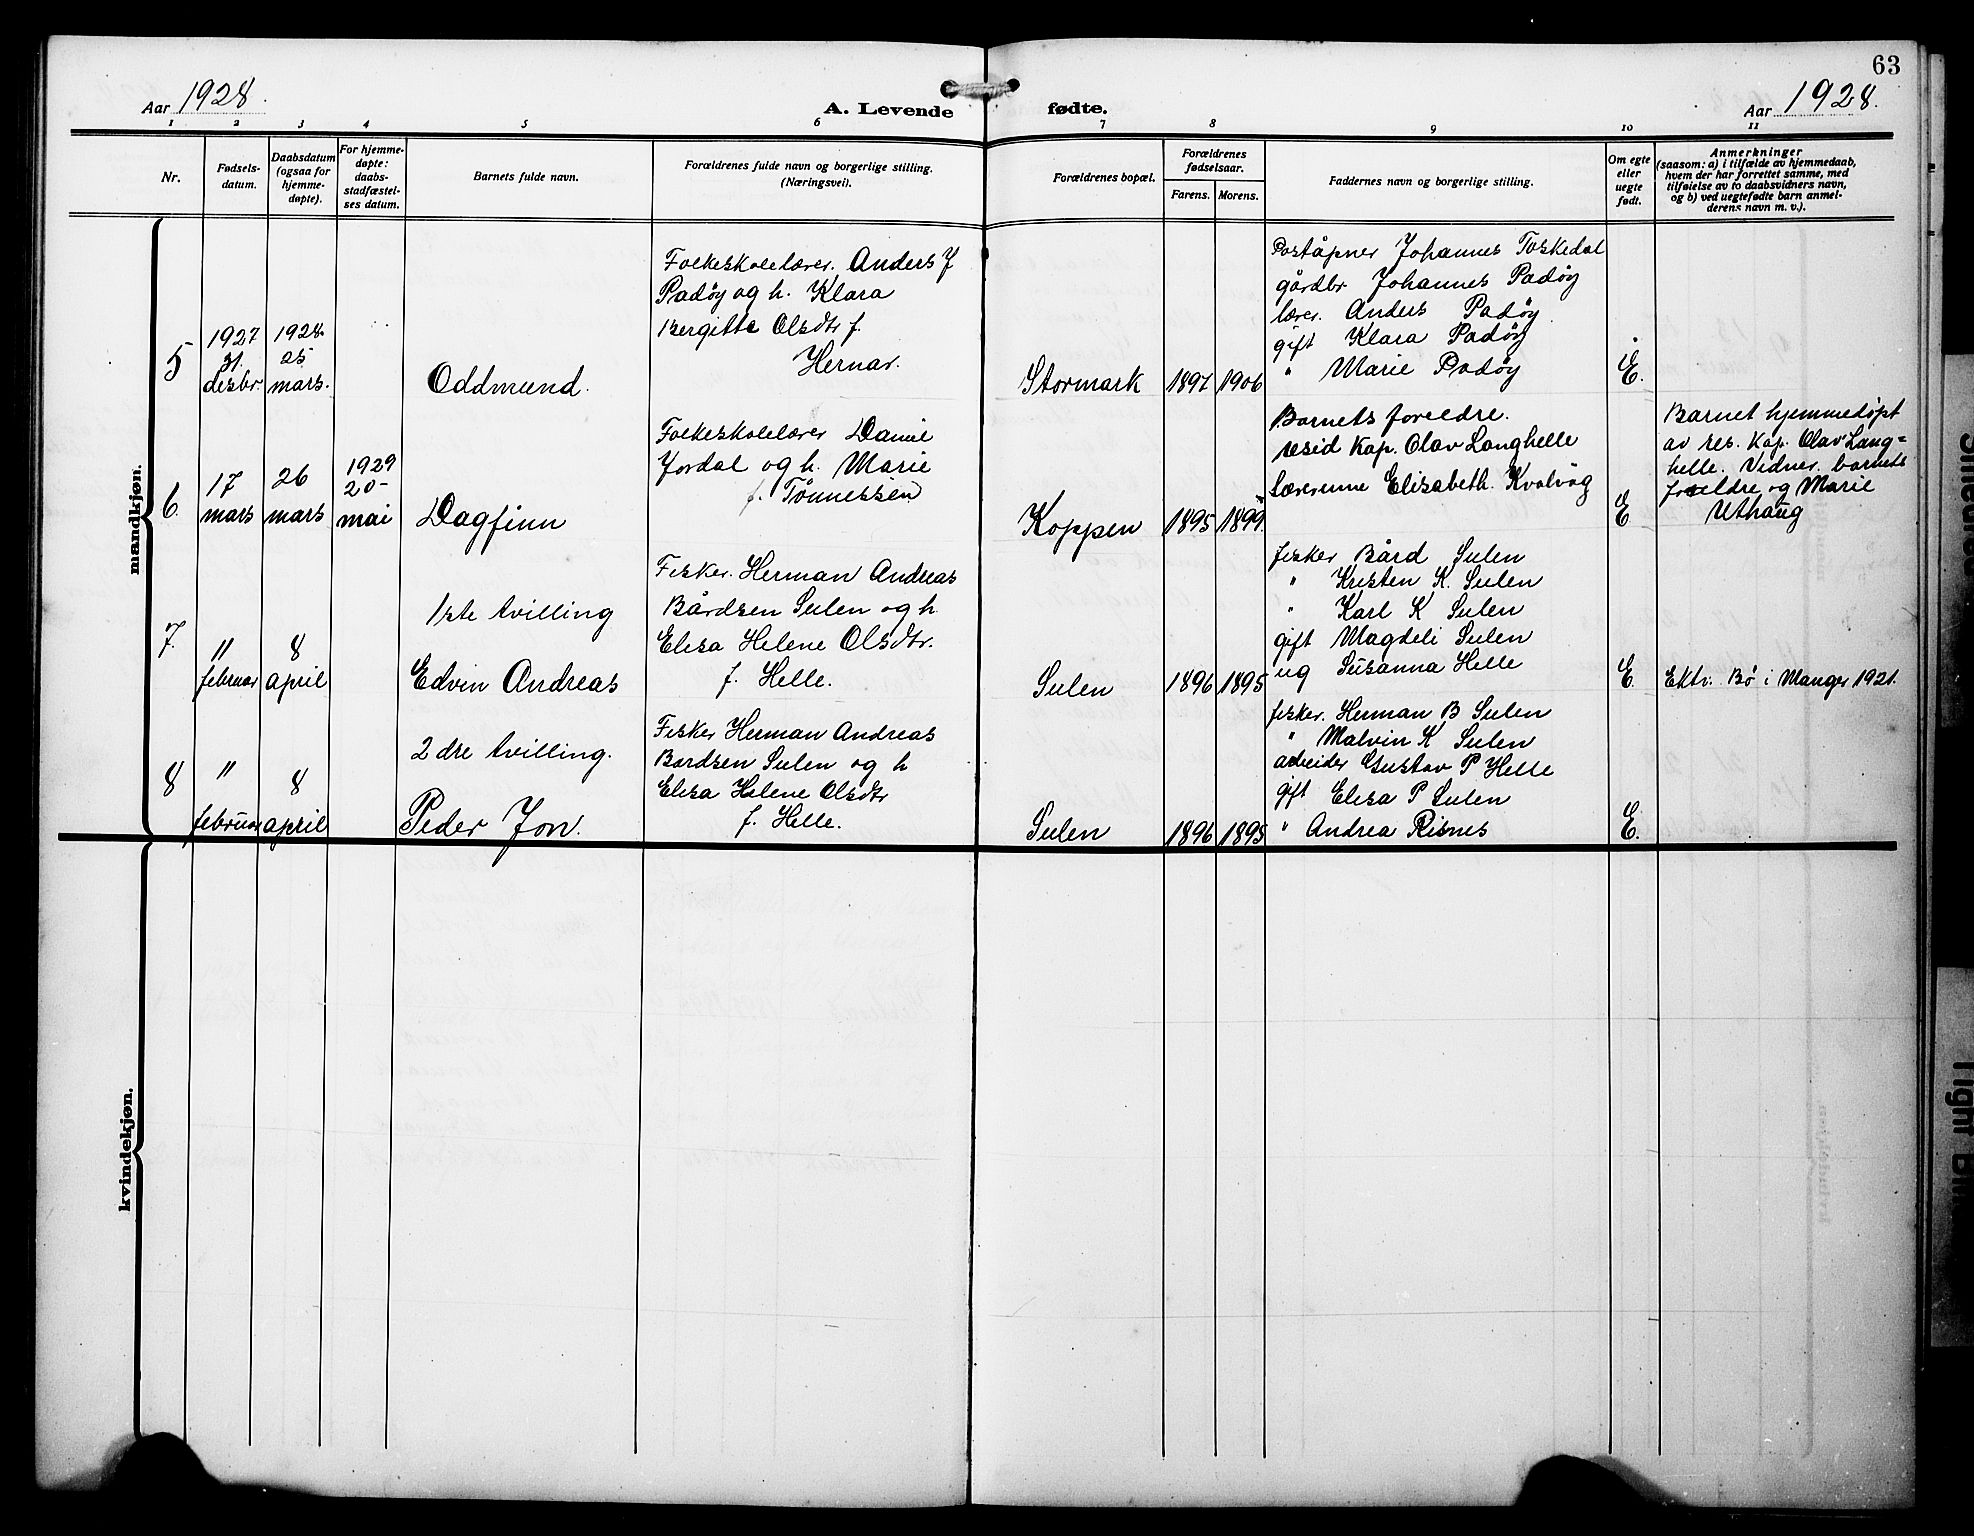 63
Aar 1928.
A. Levende fødte.
Aar 1928.
1 2 3 4 5 6 7 8 9 10 11
Nr.
Fødsels-
datum.
Daabsdatum
(ogsaa for
hjemme-
døpte).
For hjemme-
døpte:
daabs-
stadfæstel-
ses datum.
Barnets fulde navn.
Forældrenes fulde navn og borgerlige stilling.
(Næringsvei).
Forældrenes bopæl.
Forældrenes
fødselsaar.
Farens. Morens.
Faddernes navn og borgerlige stilling.
Om egte
eller
uegte
født.
Anmerkninger
(saasom: a) i tilfælde av hjemmedaab,
hvem der har forrettet samme, med
tilføielse av to daabsvidners navn,
og b) ved uegtefødte barn anmel-
derens navn m. v.).
mandkjøn.
5
1927
31.
desbr.
1928
25
mars.
Oddmund.
Folkeskolelærer. Anders J
Padøy og h. Klara
Bergitte Olsdtr f.
Hernar.
Stormark
1897
1906
Poståpner Johannes Toskedal
gårdbr Johannes Padøy
lærer. Anders Padøy
gift Klara Padøy
" Marie Padøy
E.
6.
17
mars
26
mars
1929
20-
mai
Dagfinn
Folkeskolelærer Daniel
Jordal og h. Marie
f. Tønnessen
Koppen
1895
1899.
Barnets foreldre.
resid Kap. Olav Langhelle
lærerinne Elisabeth. Kvalvåg
E
Barnet hjemmedøpt
av res. Kap. Olav Lang=
helle. Vidner. barnets
foreldre og Marie
Uthaug
7.
11
februar
8
april
1ste tvilling
Edvin Andreas
Fisker. Herman Andreas
Bårdsen Sulen og h
Elisa Helene Olsdtr.
f. Helle.
Sulen
1896
1895
fisker Bård Sulen
" Kristen K. Sulen
" Karl K Sulen
gift Magdeli Sulen
ug Susanna Helle
E.
Ektv. Bø i Manger 1921.
8
11
februar
8
april
2dre tvilling.
Peder Jon.
Fisker Herman Andreas
Bardsen Sulen og h
Elisa Helene Olsdtr
f. Helle.
Sulen
1896
1895
fisker. Herman B Sulen
" Malvin K Sulen
arbeider Gustav P Helle
gift Elisa P Sulen
" Andrea Risnes
E.
kvindekjøn.